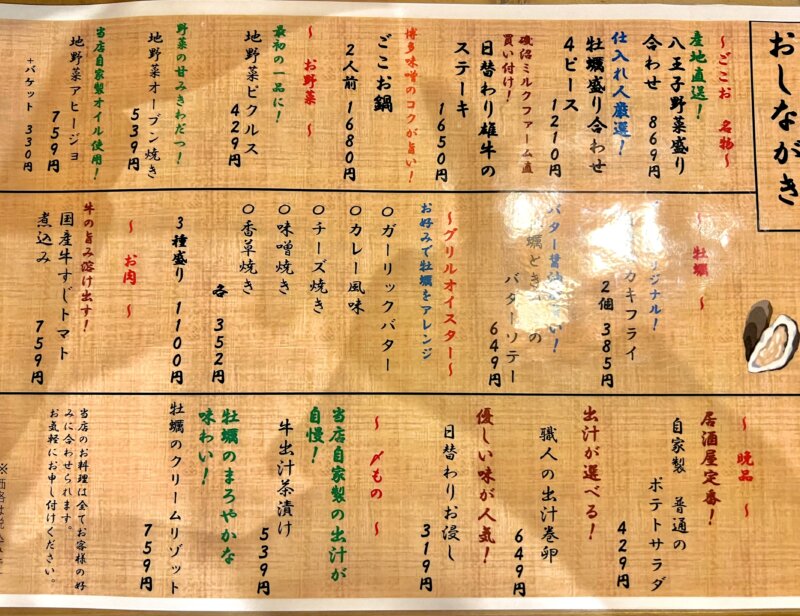 おしながき
～ごこお 名物～
産地直送！
八王子野菜盛り
合わせ 869円
仕入れ人厳選！
牡蠣盛り合わせ
4ピース
1210円
磯沼ミルクファーム直
買い付け！
日替わり雄牛の
ステーキ
1650円
博多味噌のコクが旨い！
ごこお鍋
2人前 1680円
～ お野菜 ～
最初の一品に！
地野菜ピクルス
429円
野菜の甘みきわだつ！
地野菜オーブン焼き
539円
当店自家製オイル使用！
地野菜アヒージョ
759円
+バケット 330円
～ 牡蠣 ～
ジナル！
カキフライ
2個 385円
バター醤油
い！
蠣ときの
バターソテー
649円
～グリルオイスター～
お好みで牡蠣をアレンジ
○ガーリックバター
○カレー風味
○チーズ焼き
○味噌焼き
○香草焼き
各 352円
3種盛り 1100円
～ お肉 ～
牛の旨み溶け出す！
国産牛すじトマト
煮込み
759円
～ 晩品 ～
居酒屋定番！
自家製 普通の
ポテトサラダ
429円
出汁が選べる！
職人の出汁巻卵
649円
優しい味が人気！
日替わりお浸し
319円
～ 〆もの ～
当店自家製の出汁が
自慢！
牛出汁茶漬け
539円
牡蠣のまろやかな
味わい！
牡蠣のクリームリゾット
759円
当店のお料理は全てお客様の好
みに合わせられます。
お気軽にお申し付けください。